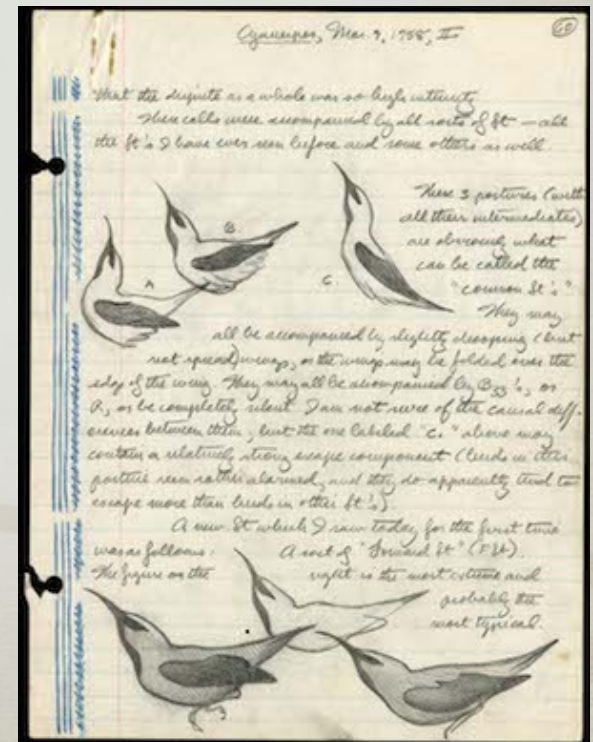 Cyanerpes, Mar. 9, 1958, II
60
that the dispute as a whole was so high intensity
These calls were accompanied by all sorts of St — all
the St's I have ever seen before and some others as well.
These 3 postures (with
all their intermediates)
are obviously what
can be called the
"common St's".
They may
A
B
C.
all be accompanied by slightly drooping (but
not spread) wings, or the wings may be folded over the
edge of the wing. They may all be accompanied by B33's, or
R, or be completely silent. I am not sure of the causal diff-
erences between them, but the one labeled "C." above may
contain a relatively strong escape component (birds in this
posture seem rather alarmed, and they do apparently tend to
escape more than birds in other St's)
A new St which I saw today for the first time
was as follows: A sort of "Forward St" (F St).
The figure on the right is the most extreme and
probably the
most typical.